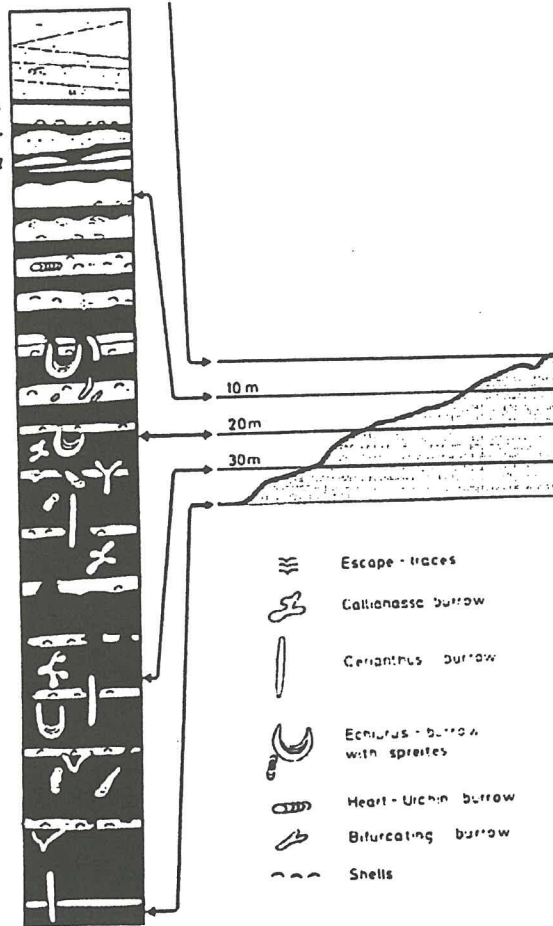 10 m
20 m
30 m
Escape - traces
Callianassa burrow
Cerianthus burrow
Echiurus - burrow
with spreites
Heart - Urchin burrow
Bifurcating burrow
Shells